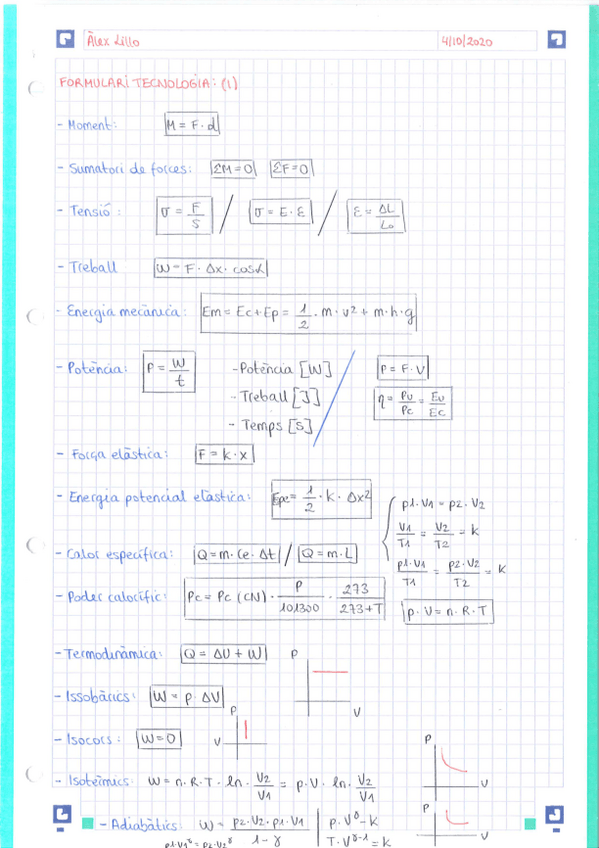 Àlex Lillo 4/10/2020
FORMULARI TECNOLOGIA: (1)
- Moment: M = F · d
- Sumatori de forces: ΣM=0 ΣF=0
- Tensió: σ = F/S / σ = E · ε / ε = ΔL/L₀
- Treball W = F · Δx · cosα
- Energia mecànica: Em = Ec + Ep = 1/2 · m · v² + m · h · g
- Potència: P = W/t - Potència [W] / P = F · V
- Treball [J] η = Pu/Pc = Eu/Ec
- Temps [s]
- Força elàstica: F = k · x
- Energia potencial elàstica: Epe = 1/2 · k · Δx²
p1 · V1 = p2 · V2
V1/T1 = V2/T2 = k
- Calor específica: Q = m · Ce · Δt / Q = m · L
p1 · V1/T1 = p2 · V2/T2 = k
- Poder calorífic: Pc = Pc (CN) · P/101300 · 273/273+T
p · V = n · R · T
- Termodinàmica: Q = ΔU + W P
V
- Issobàrics: W = p · ΔV
P
- Isocors: W=0 V
P
- Isotèrmics: W = n · R · T · ln · V2/V1 = p · V · ln · V2/V1 V
P
- Adiabàtics: W = p2 · V2 · p1 · V1/1 - γ | p · V^γ = k V
p1 · V1^γ = p2 · V2^γ T · V^γ-1 = k